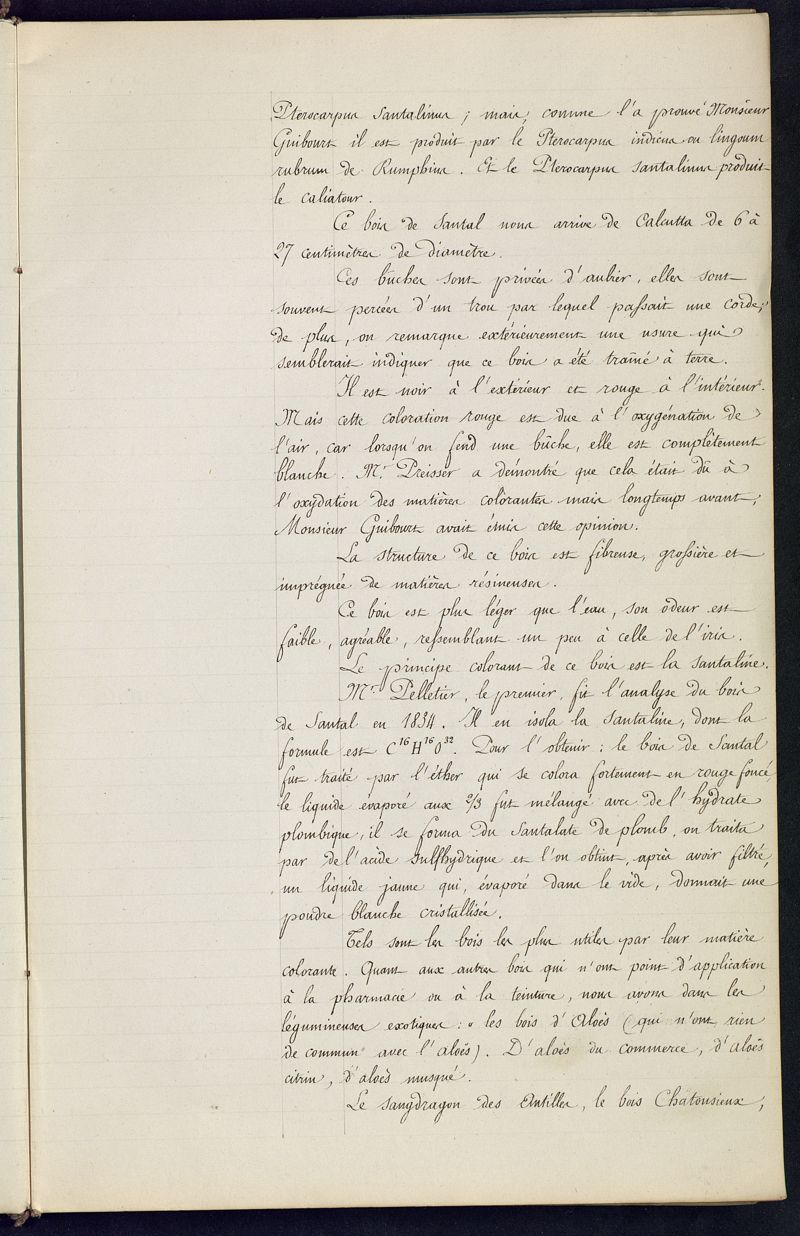 Pterocarpus Santalinus ; mais, comme l'a prouvé Monsieur
Guibourt il est produit par le Pterocarpus indicus ou lingoum
rubrum de Rumphius. Et le Pterocarpus santalinus produit
le caliatour.
Ce bois de Santal nous arrive de Calcutta de 6 à
27 centimètres de diamètre.
Ces bûches sont privées d'aubier, elles sont
souvent percées d'un trou par lequel passait une corde,
de plus, on remarque extérieurement une usure qui
semblerait indiquer que ce bois a été traîné à terre.
Il est noir à l'extérieur et rouge à l'intérieur.
Mais cette coloration rouge est due à l'oxygénation de
l'air, car lorsqu'on fend une bûche, elle est complètement
blanche. Mr Preisser a démontré que cela était dû à
l'oxydation des matières colorantes mais longtemps avant,
Monsieur Guibourt avait émis cette opinion.
La structure de ce bois est fibreuse, grossière et
imprégnée de matières résineuses.
Ce bois est plus léger que l'eau, son odeur est
faible, agréable, ressemblant un peu à celle de l'iris.
Le principe colorant de ce bois est la santaline.
Mr Pelletier, le premier, fit l'analyse du bois
de Santal en 1834. Il en isola la santaline, dont la
formule est C16 H16 O32. Pour l'obtenir : le bois de Santal
fut traité par l'éther qui se colora fortement en rouge foncé,
le liquide évaporé aux 2/3 fut mélangé avec de l'hydrate
plombique, il se forma du Santalate de plomb, on traita
par de l'acide sulfhydrique et l'on obtint, après avoir filtré,
un liquide jaune qui, évaporé dans le vide, donnait une
poudre blanche cristallisée.
Tels sont les bois les plus utiles par leur matière
colorante. Quant aux autres bois qui n'ont point d'application
à la pharmacie ou à la teinture, nous avons dans les
légumineuses exotiques : " les bois d'Aloès (qui n'ont rien
de commun avec l'aloès). D'aloès du commerce, d'aloès
citrin, d'aloès musqué.
Le sangdragon des Antilles, le bois Chatousieux,